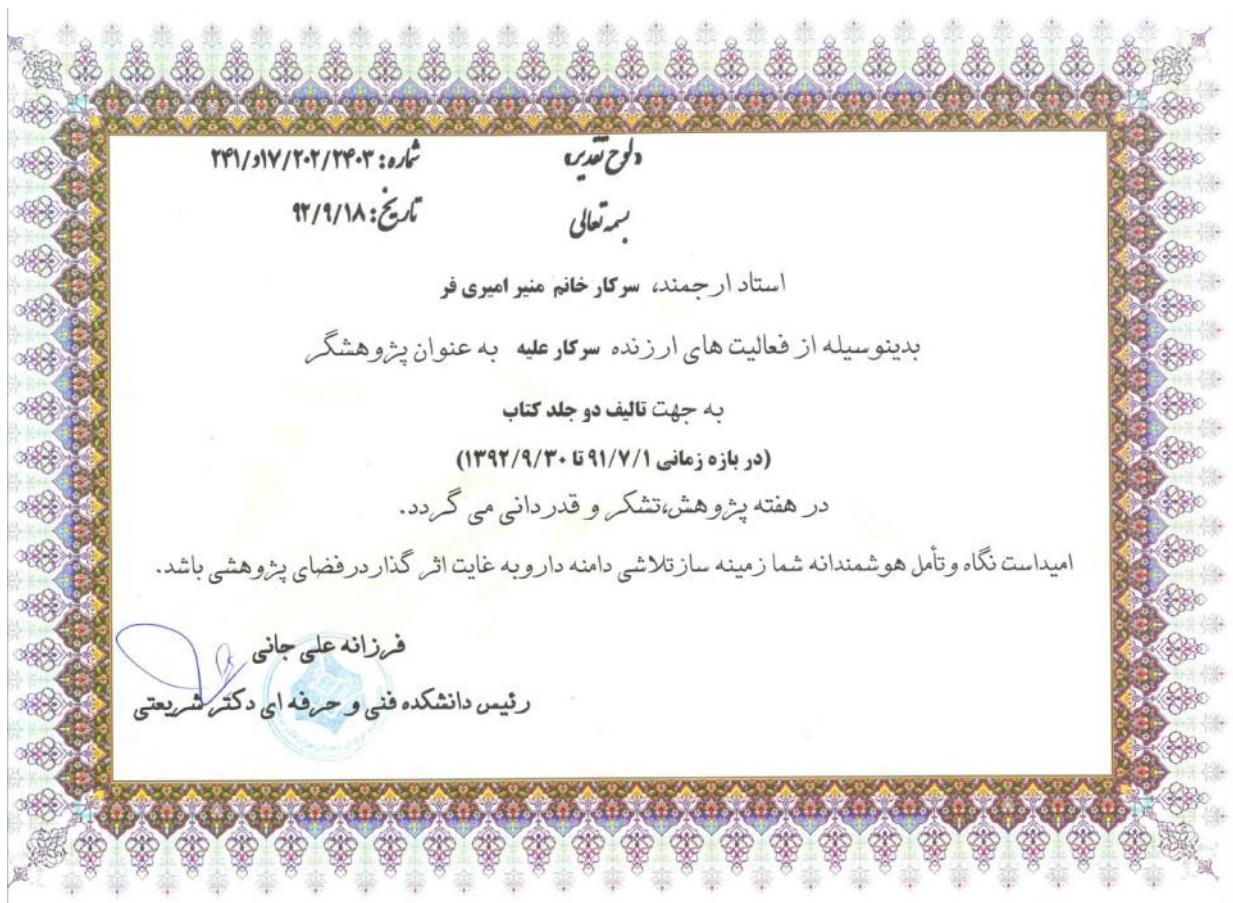 «لوح تقدیر»
شماره: ۲۴۱/د/۱۷/۲۰۲/۲۴۰۳
بسمه تعالی
تاریخ: ۹۲/۹/۱۸
استاد ارجمند، سرکار خانم منیر امیری فر
بدینوسیله از فعالیت های ارزنده سرکار علیه به عنوان پژوهشگر
به جهت تالیف دو جلد کتاب
(در بازه زمانی ۹۱/۷/۱ تا ۱۳۹۲/۹/۳۰)
در هفته پژوهش،تشکر و قدردانی می گردد.
امیداست نگاه وتأمل هوشمندانه شما زمینه سازتلاشی دامنه داروبه غایت اثر گذاردرفضای پژوهشی باشد.
فرزانه علی جانی
رئیس دانشکده فنی و حرفه ای دکتر شریعتی